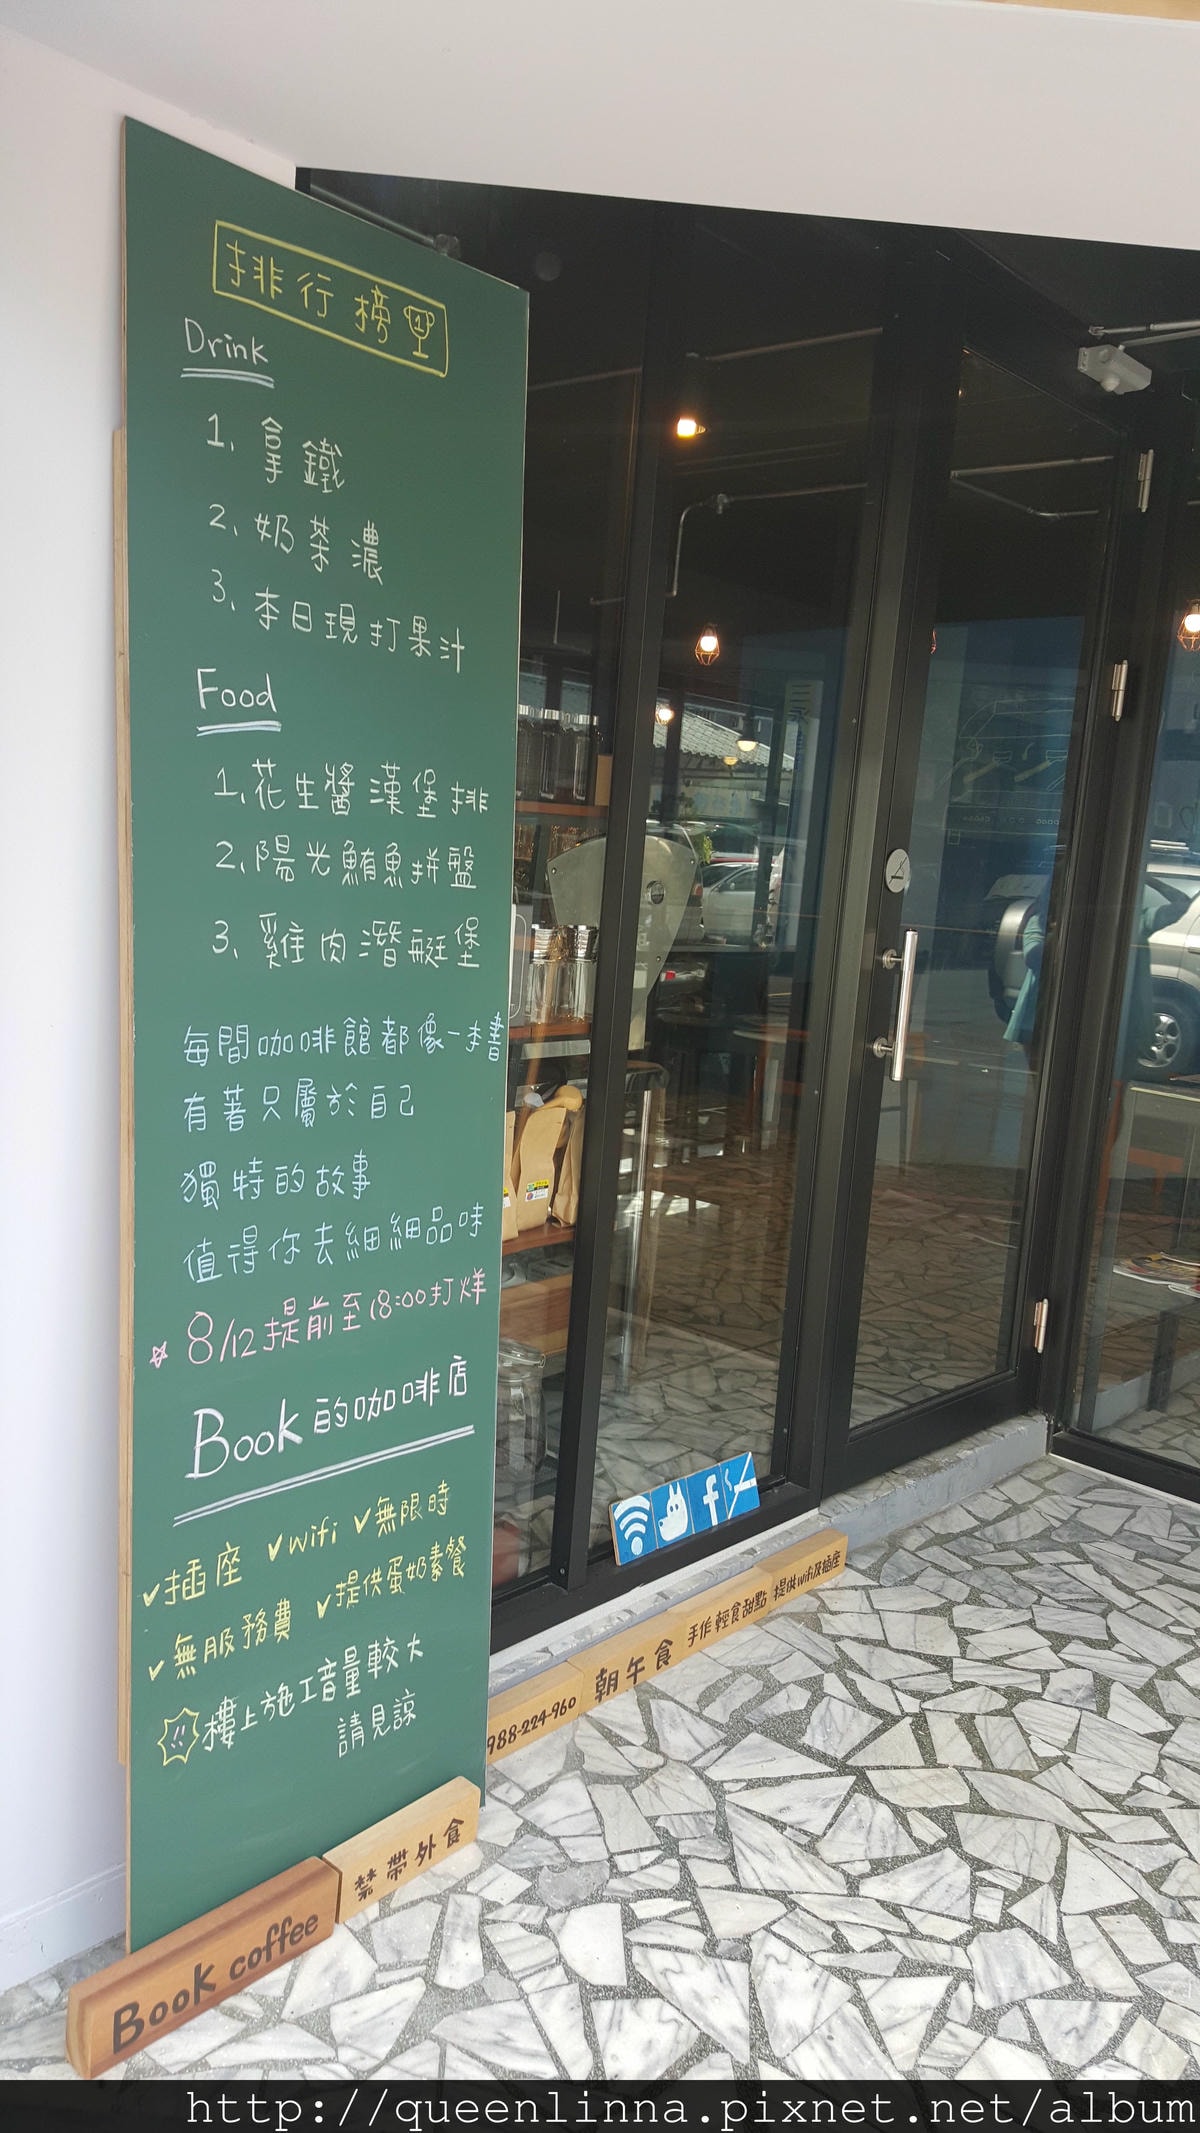 排行榜 1
Drink
1. 拿鐵
2. 奶茶濃
3. 本日現打果汁
Food
1. 花生醬漢堡排
2. 陽光鮪魚拼盤
3. 雞肉潛艇堡
每間咖啡館都像一本書
有著只屬於自己
獨特的故事
值得你去細細品味
8/12提前至18:00打烊
Book的咖啡店
✓插座 ✓wifi ✓無限時
✓無服務費 ✓提供蛋奶素餐
樓上施工音量較大
請見諒
Book coffee
禁帶外食
988-224-960
朝午食
手作輕食甜點
提供wifi及插座
f
http://queenlinna.pixnet.net/album